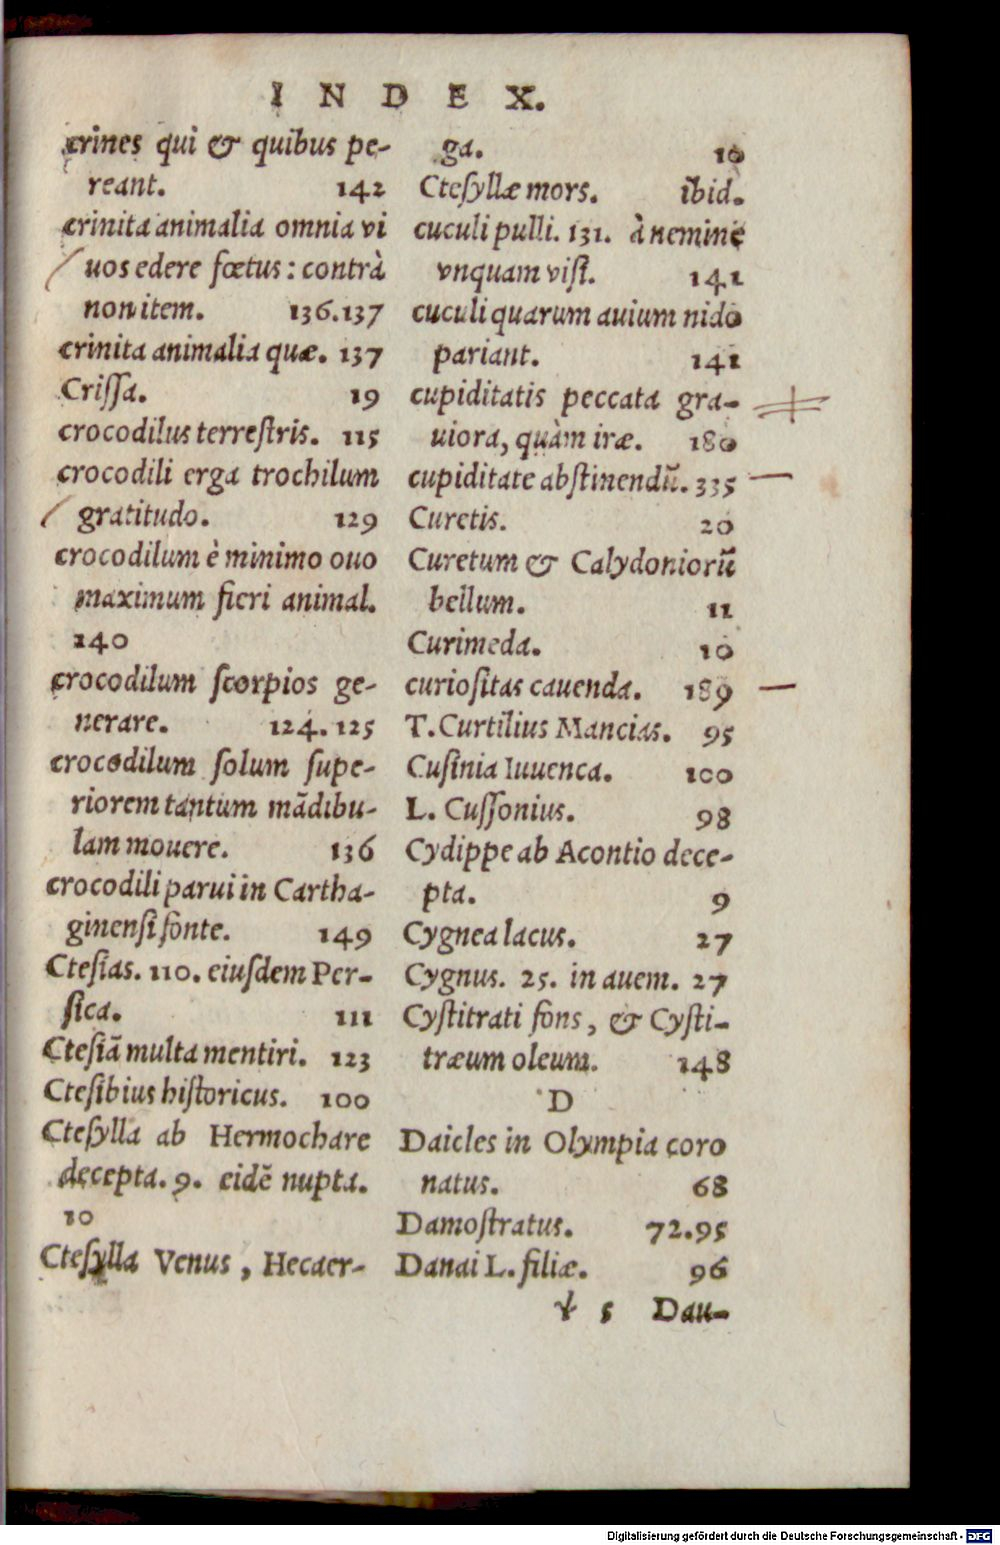 INDEX.
crines qui & quibus pe-
reant. 142
crinita animalia omnia vi
uos edere fœtus: contrà
non item. 136.137
crinita animalia quæ. 137
Crissa. 19
crocodilus terrestris. 115
crocodili erga trochilum
gratitudo. 129
crocodilum è minimo ouo
maximum fieri animal.
140
crocodilum scorpios ge-
nerare. 124.125
crocodilum solum supe-
riorem tantum mādibu-
lam mouere. 136
crocodili parui in Cartha-
ginensi fonte. 149
Ctesias. 110. eiusdem Per-
sica. 111
Ctesiā multa mentiri. 123
Ctesibius historicus. 100
Ctesylla ab Hermochare
decepta. 9. eidē nupta.
10
Ctesylla Venus, Hecaer-
ga. 10
Ctesyllæ mors. ibid.
cuculi pulli. 131. à nemine
vnquam visi. 141
cuculi quarum auium nido
pariant. 141
cupiditatis peccata gra-
uiora, quàm iræ. 180
cupiditate abstinendū. 335
Curetis. 20
Curetum & Calydoniorū
bellum. 11
Curimeda. 10
curiositas cauenda. 189
T. Curtilius Mancias. 95
Cusinia Iuuenca. 100
L. Cussonius. 98
Cydippe ab Acontio dece-
pta. 9
Cygnea lacus. 27
Cygnus. 25. in auem. 27
Cystitrati fons, & Cysti-
træum oleum. 148
D
Daicles in Olympia coro
natus. 68
Damostratus. 72.95
Danai L. filiæ. 96
5 Dau-
Digitalisierung gefördert durch die Deutsche Forschungsgemeinschaft - DFG